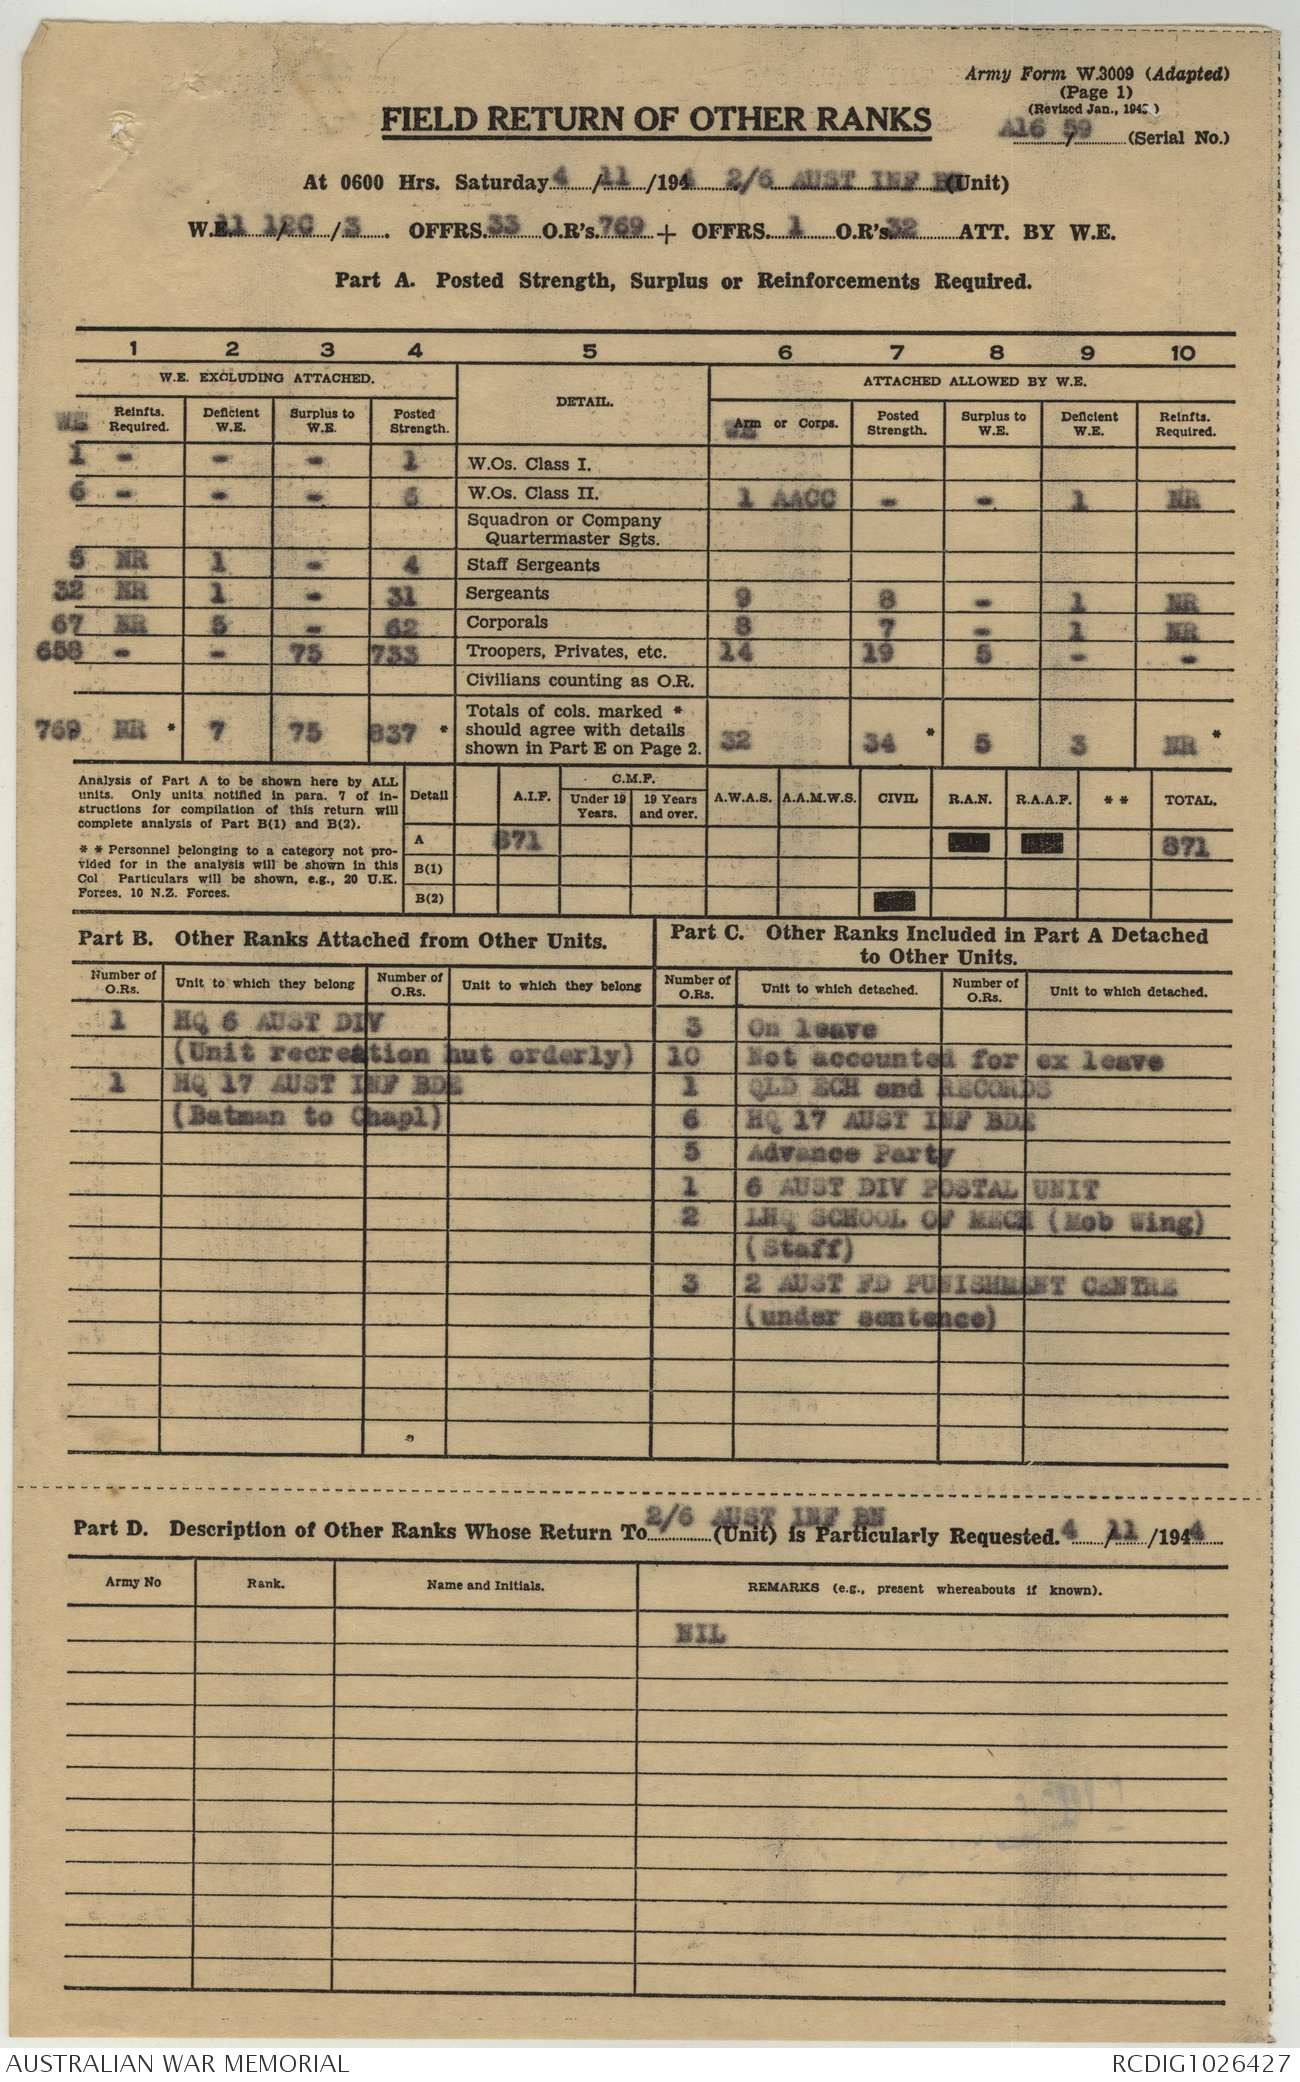 Army Form W.3009 (Adapted)
(Page 1)
(Revised Jan., 194 )
FIELD RETURN OF OTHER RANKS
A16 / 59 (Serial No.)
At 0600 Hrs. Saturday 4 / 11 /1944 2/6 AUST INF BN (Unit)
W.E. 11 / 12C / 3 . OFFRS. 33 O.R's. 769 + OFFRS. 1 O.R's 32 ATT. BY W.E.
Part A. Posted Strength, Surplus or Reinforcements Required.
1 2 3 4 5 6 7 8 9 10
W.E. EXCLUDING ATTACHED. DETAIL. ATTACHED ALLOWED BY W.E.
WE Reinfts. Required. Deficient W.E. Surplus to W.E. Posted Strength. WE Arm or Corps. Posted Strength. Surplus to W.E. Deficient W.E. Reinfts. Required.
1 - - - 1 W.Os. Class I.
6 - - - 6 W.Os. Class II. 1 AACC - - 1 NR
Squadron or Company
Quartermaster Sgts.
5 NR 1 - 4 Staff Sergeants
32 NR 1 - 31 Sergeants 9 8 - 1 NR
67 NR 5 - 62 Corporals 8 7 - 1 NR
658 - - 75 733 Troopers, Privates, etc. 14 19 5 - -
Civilians counting as O.R.
Totals of cols. marked *
769 NR * 7 75 837 * should agree with details 32 34 * 5 3 NR *
shown in Part E on Page 2.
Analysis of Part A to be shown here by ALL
units. Only units notified in para. 7 of in-
structions for compilation of this return will
complete analysis of Part B(1) and B(2).
* * Personnel belonging to a category not pro-
vided for in the analysis will be shown in this
Col Particulars will be shown, e.g., 20 U.K.
Forces, 10 N.Z. Forces.
Detail A.I.F. C.M.F. Under 19 Years. 19 Years and over. A.W.A.S. A.A.M.W.S. CIVIL R.A.N. R.A.A.F. * * TOTAL.
A 871 871
B(1)
B(2)
Part B. Other Ranks Attached from Other Units.
Number of O.Rs. Unit to which they belong Number of O.Rs. Unit to which they belong
1 HQ 6 AUST DIV
(Unit recreation hut orderly)
1 HQ 17 AUST INF BDE
(Batman to Chapl)
Part C. Other Ranks Included in Part A Detached
to Other Units.
Number of O.Rs. Unit to which detached. Number of O.Rs. Unit to which detached.
3 On leave
10 Not accounted for ex leave
1 QLD ECH and RECORDS
6 HQ 17 AUST INF BDE
5 Advance Party
1 6 AUST DIV POSTAL UNIT
2 LHQ SCHOOL OF MECH (Mob Wing)
(Staff)
3 2 AUST FD PUNISHMENT CENTRE
(under sentence)
Part D. Description of Other Ranks Whose Return To 2/6 AUST INF BN (Unit) is Particularly Requested. 4 / 11 /1944
Army No Rank. Name and Initials. REMARKS (e.g., present whereabouts if known).
NIL
AUSTRALIAN WAR MEMORIAL RCDIG1026427